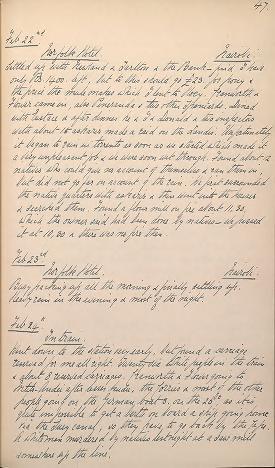 47.
Feb 22nd
Norfolk Hotel. Nairobi.
Settled up with Newland & Tarlton & the Bank — paid I have
only Rs. 1400. left, but to this should go £23. for pony &
the price the mule makes which I lent to Povey.
Fowler came in, also Pomeranda & the other Spaniards. dined
with & after dinner he & I & Donald & two inspectors
with about 10 askaris made a raid on the dandis. Unfortunately
it began to rain in torrents as soon as we started which made it
a very unpleasant job & we were soon wet through. Found about 2
natives who could give no account of themselves & ran them in,
but did not go far on account of the rain. We first surrounded
the native quarters with askaris & then went into the houses
& searched them. Found a flour mill on fire about 11.30,
which the owner said had been done by natives as we passed
it at 10.30 & there was no fire then.
Feb 23rd
Norfolk Hotel. Nairobi.
Busy packing up all the morning & finally settling up.
Heavy rain in the evening & most of the night.
Feb 24th
In train.
Went down to the station very early, but found a carriage
reserved for me all right. Twenty five white people in the train
& about 8 reserved carriages. & I are going to
after a few weeks, the Torries & most of the other
people going on the German boat on the 28th as it is
quite impossible to get a berth on board a ship going home
via the Suez canal, so they have to go back by the Cape.
A Dutchman murdered by natives last night at a saw mill
somewhere up the line.